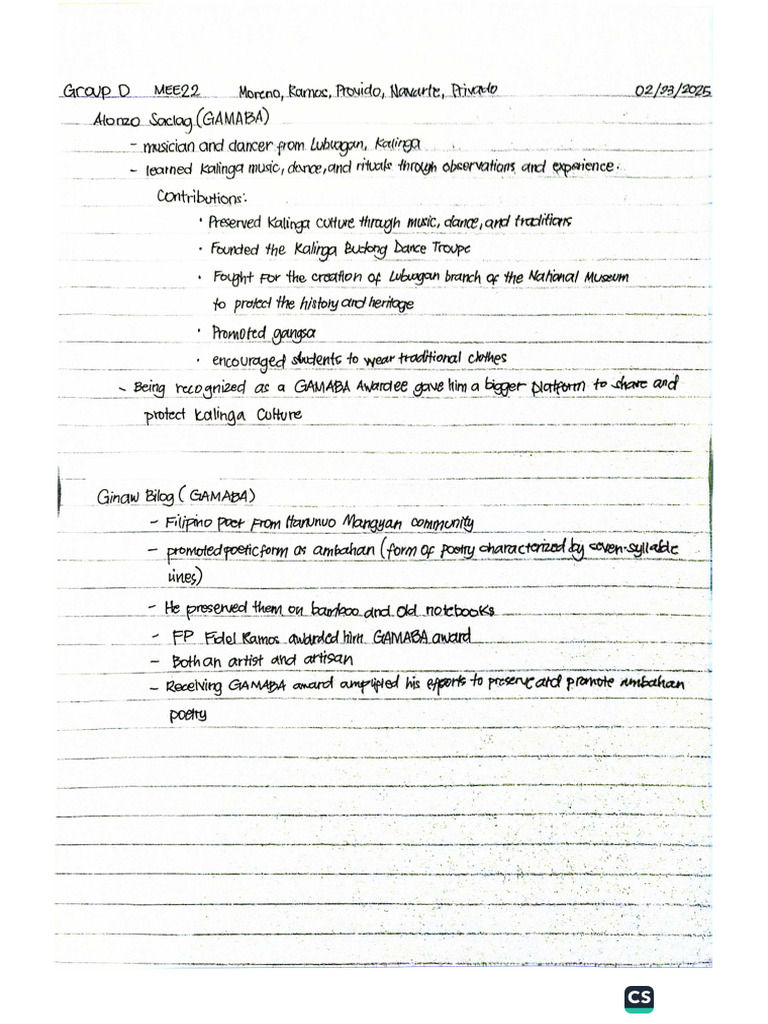 Group D MEE22 Moreno, Ramos, Provido, Navarte, Privado 02/23/2025
Alonzo Saclag (GAMABA)
- musician and dancer from Lubuagan, Kalinga
- learned Kalinga music, dance, and rituals through observations and experience.
Contributions:
• Preserved Kalinga culture through music, dance, and traditions
• Founded the Kalinga Budong Dance Troupe
• Fought for the creation of Lubuagan branch of the National Museum
to protect the history and heritage
• Promoted gangsa
• encouraged students to wear traditional clothes
- Being recognized as a GAMABA Awardee gave him a bigger platform to share and
protect Kalinga Culture
Ginaw Bilog (GAMABA)
- Filipino poet from Hanunuo Mangyan community
- promoted poetic form as ambahan (form of poetry characterized by seven-syllable
lines)
- He preserved them on bamboo and old notebooks
- FP Fidel Ramos awarded him GAMABA award
- Both an artist and artisan
- Receiving GAMABA award amplified his efforts to preserve and promote ambahan
poetry
CS